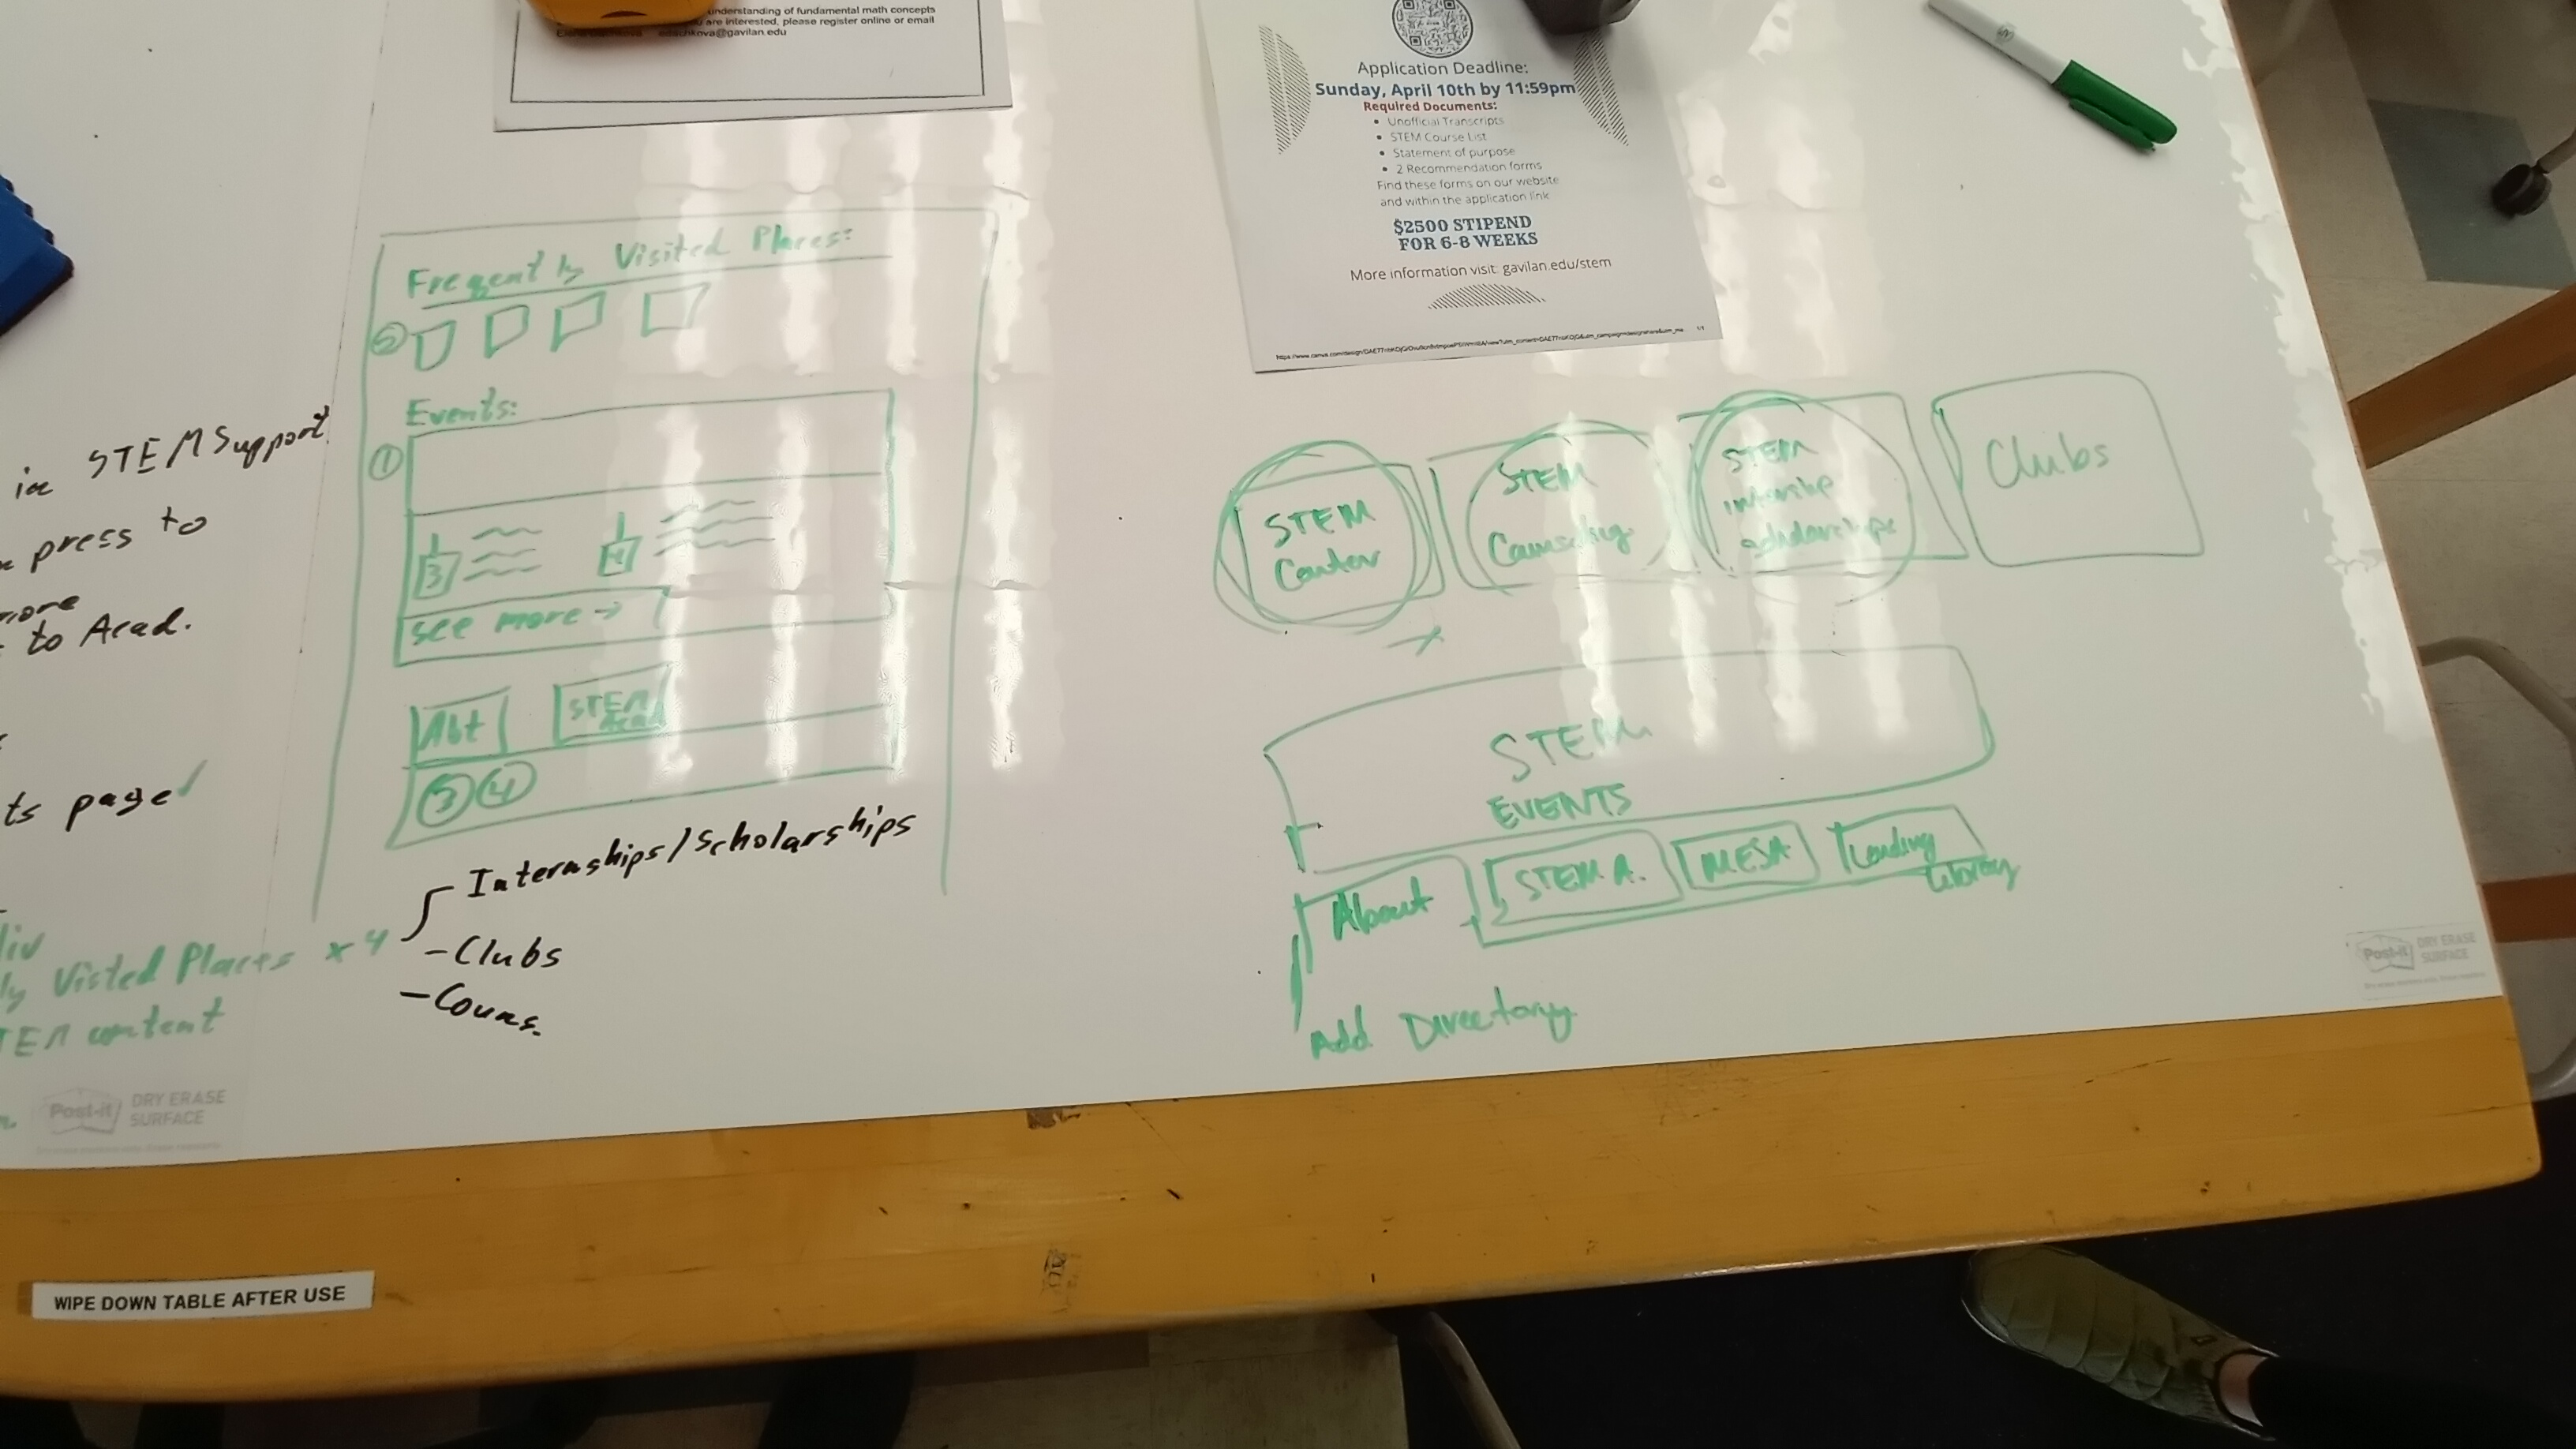 understanding of fundamental math concepts
are interested, please register online or email
@gavilan.edu
Application Deadline:
Sunday, April 10th by 11:59pm
Required Documents:
• Unofficial Transcripts
• STEM Course List
• Statement of purpose
• 2 Recommendation forms
Find these forms on our website
and within the application link
$2500 STIPEND
FOR 6-8 WEEKS
More information visit: gavilan.edu/stem
1/1
in STEM Support
press to
more
to Acad.
ts page
liv
ly Visted Places x 4
TEM content
Frequently Visited Places:
2
Events:
1
3
4
see more →
Abt
STEM
Acad
3 4
- Internships/Scholarships
- Clubs
- Couns.
STEM
Center
STEM
Counseling
STEM
internship
scholarships
Clubs
STEM
EVENTS
About
STEM A.
MESA
Lending
Library
Add Directory
Post-it DRY ERASE
SURFACE
Post-it DRY ERASE
SURFACE
WIPE DOWN TABLE AFTER USE